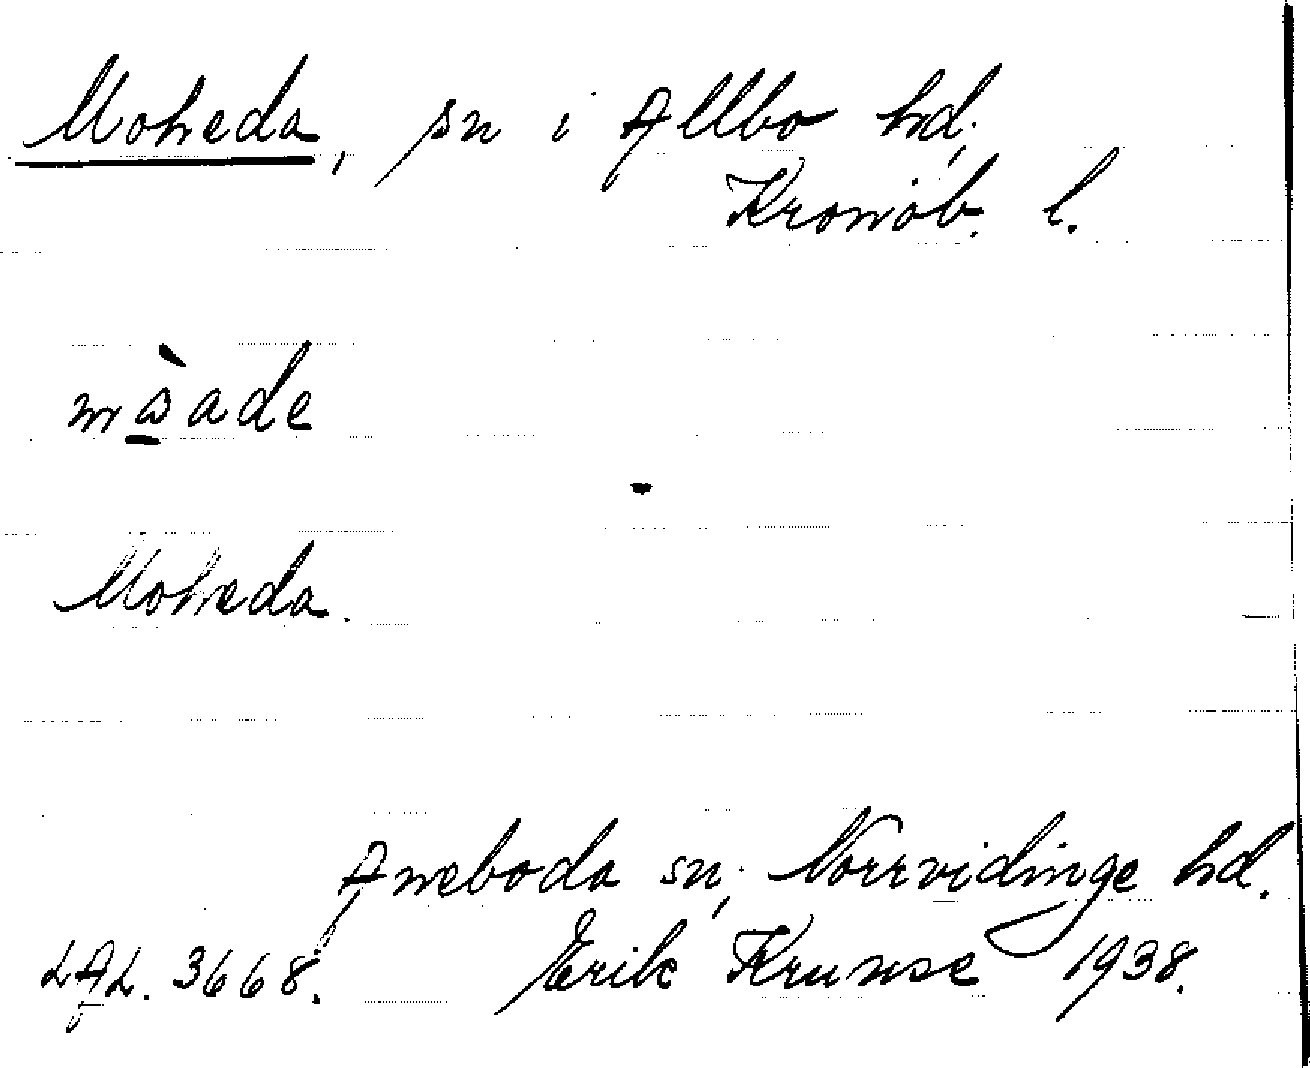 Moheda, sn i Allbo hd,
Kronob. l.
Moheda.
Aneboda sn, Norrvidinge hd.
LAL. 3668. Erik Krunse 1938.